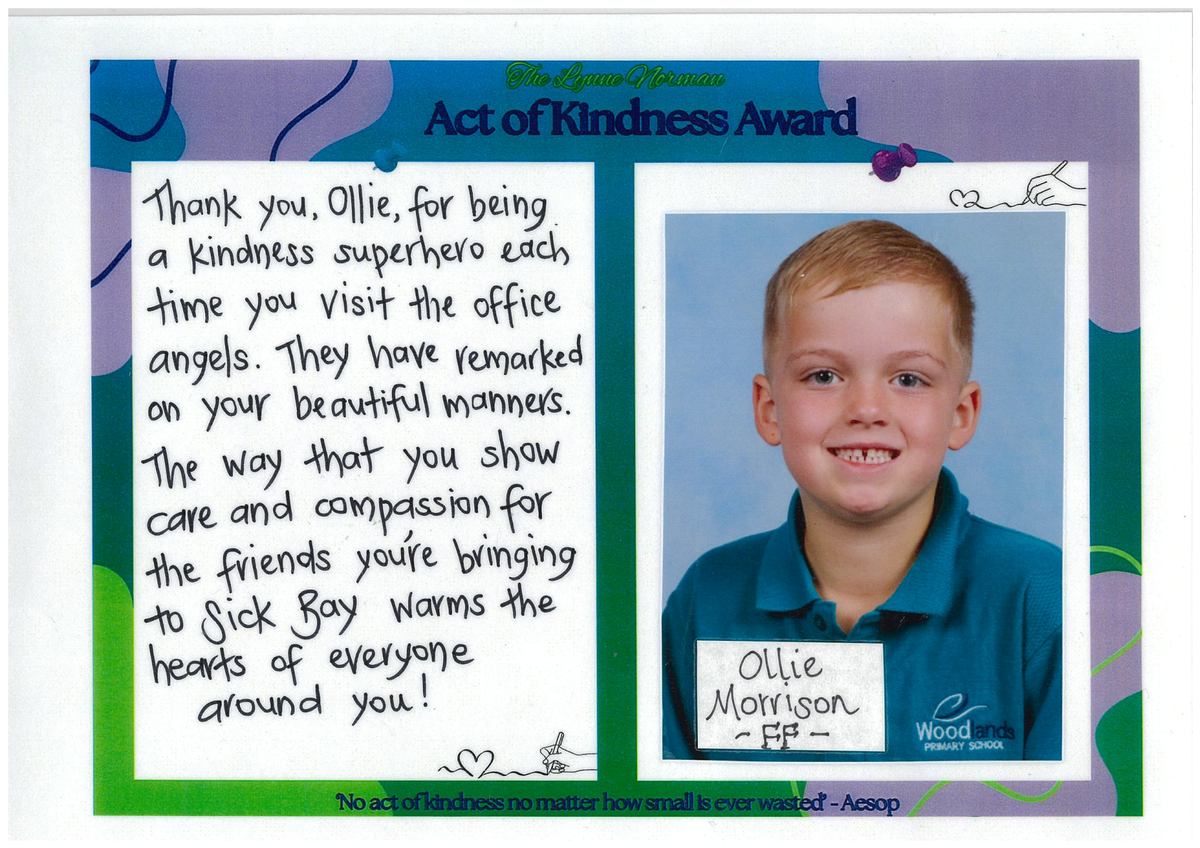 The Lynne Norman
Act of Kindness Award
Thank you, Ollie, for being
a kindness superhero each
time you visit the office
angels. They have remarked
on your beautiful manners.
The way that you show
care and compassion for
the friends you're bringing
to Sick Bay warms the
hearts of everyone
around you!
Ollie
Morrison
- FF -
Woodlands
PRIMARY SCHOOL
'No act of kindness no matter how small is ever wasted' - Aesop